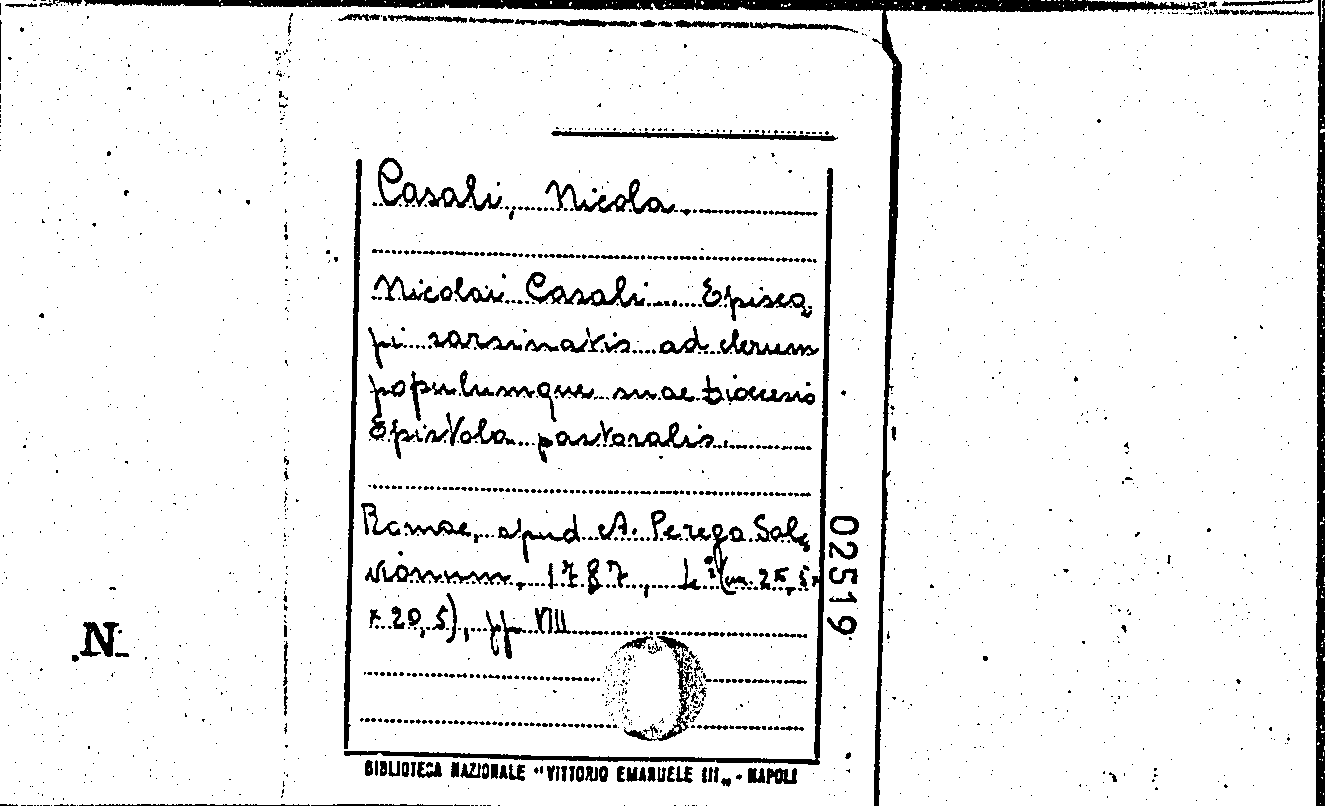 Casali, Nicola.
Nicolai Casali... Episco,
pi sarsinatis ad clerum
populumque suae Diocesis
Epistola pastoralis.
Romae, apud A. Perego Sal,
vionum, 1787, (cm. 25,5×
× 20,5), pp. VIII
02519
.N
BIBLIOTECA NAZIONALE "VITTORIO EMANUELE III„ - NAPOLI